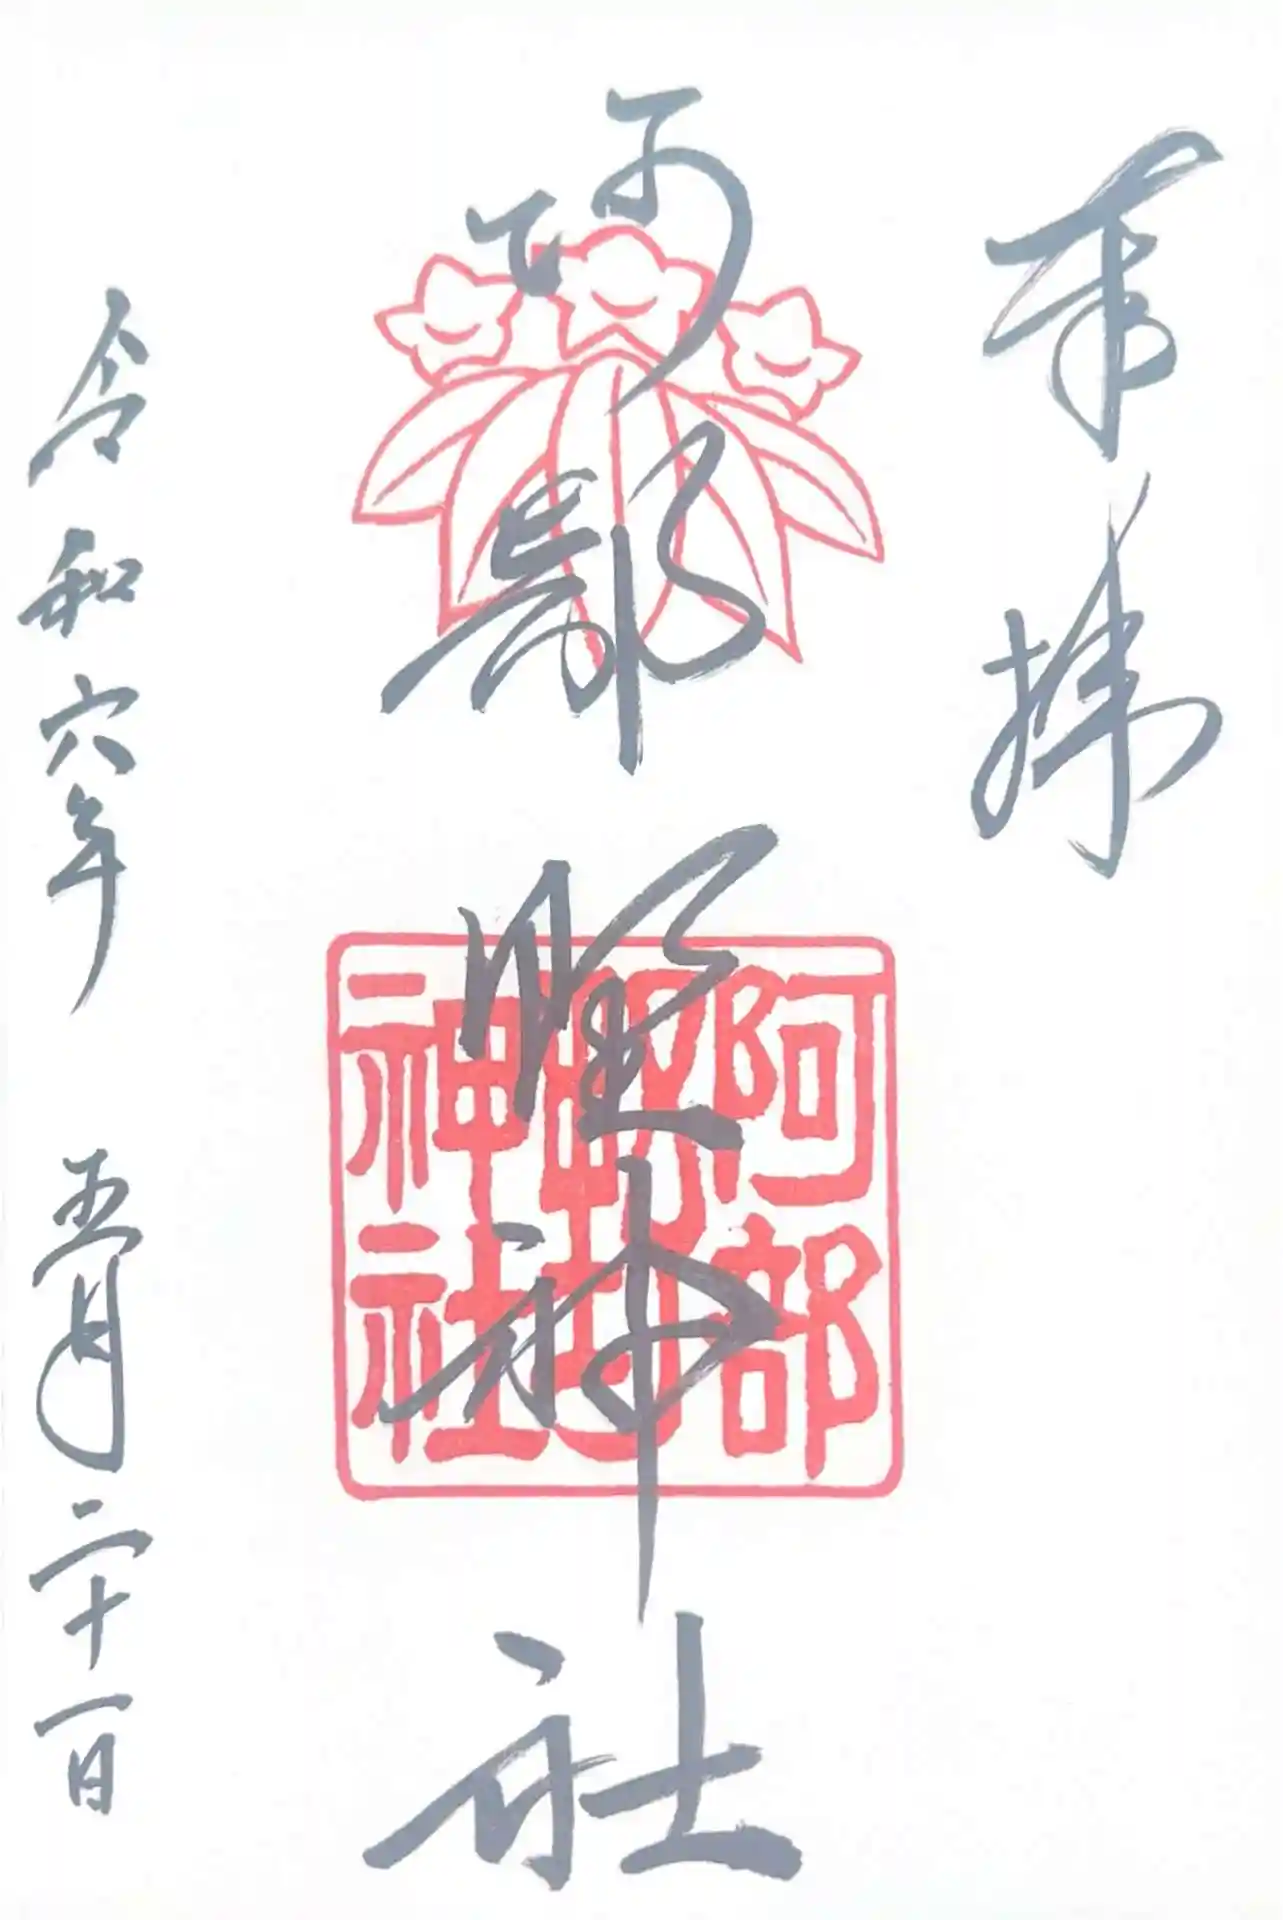 奉拝
阿部野神社
阿部野神社
令和六年 五月二十一日